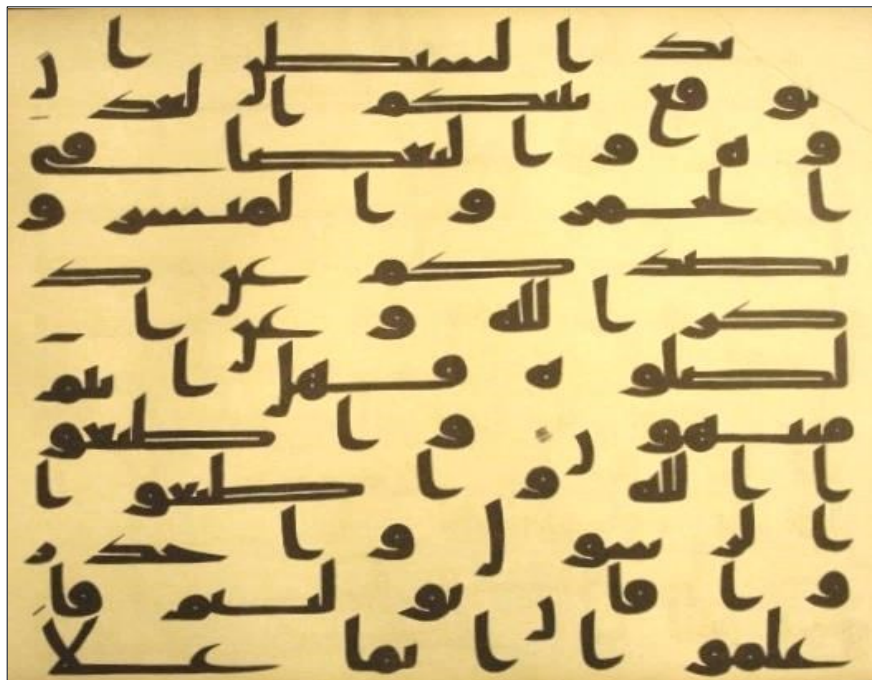 يد الشيطن ان
يوقع بينكم العد
وة والبغضا في
الخمر والميسر و
يصدكم عن ذ
كر الله وعن ا
لصلوة فهل انتم
منتهون واطيعو
ا الله واطيعوا
الرسول واحذر
وا فان توليتم فا
علموا انما علا